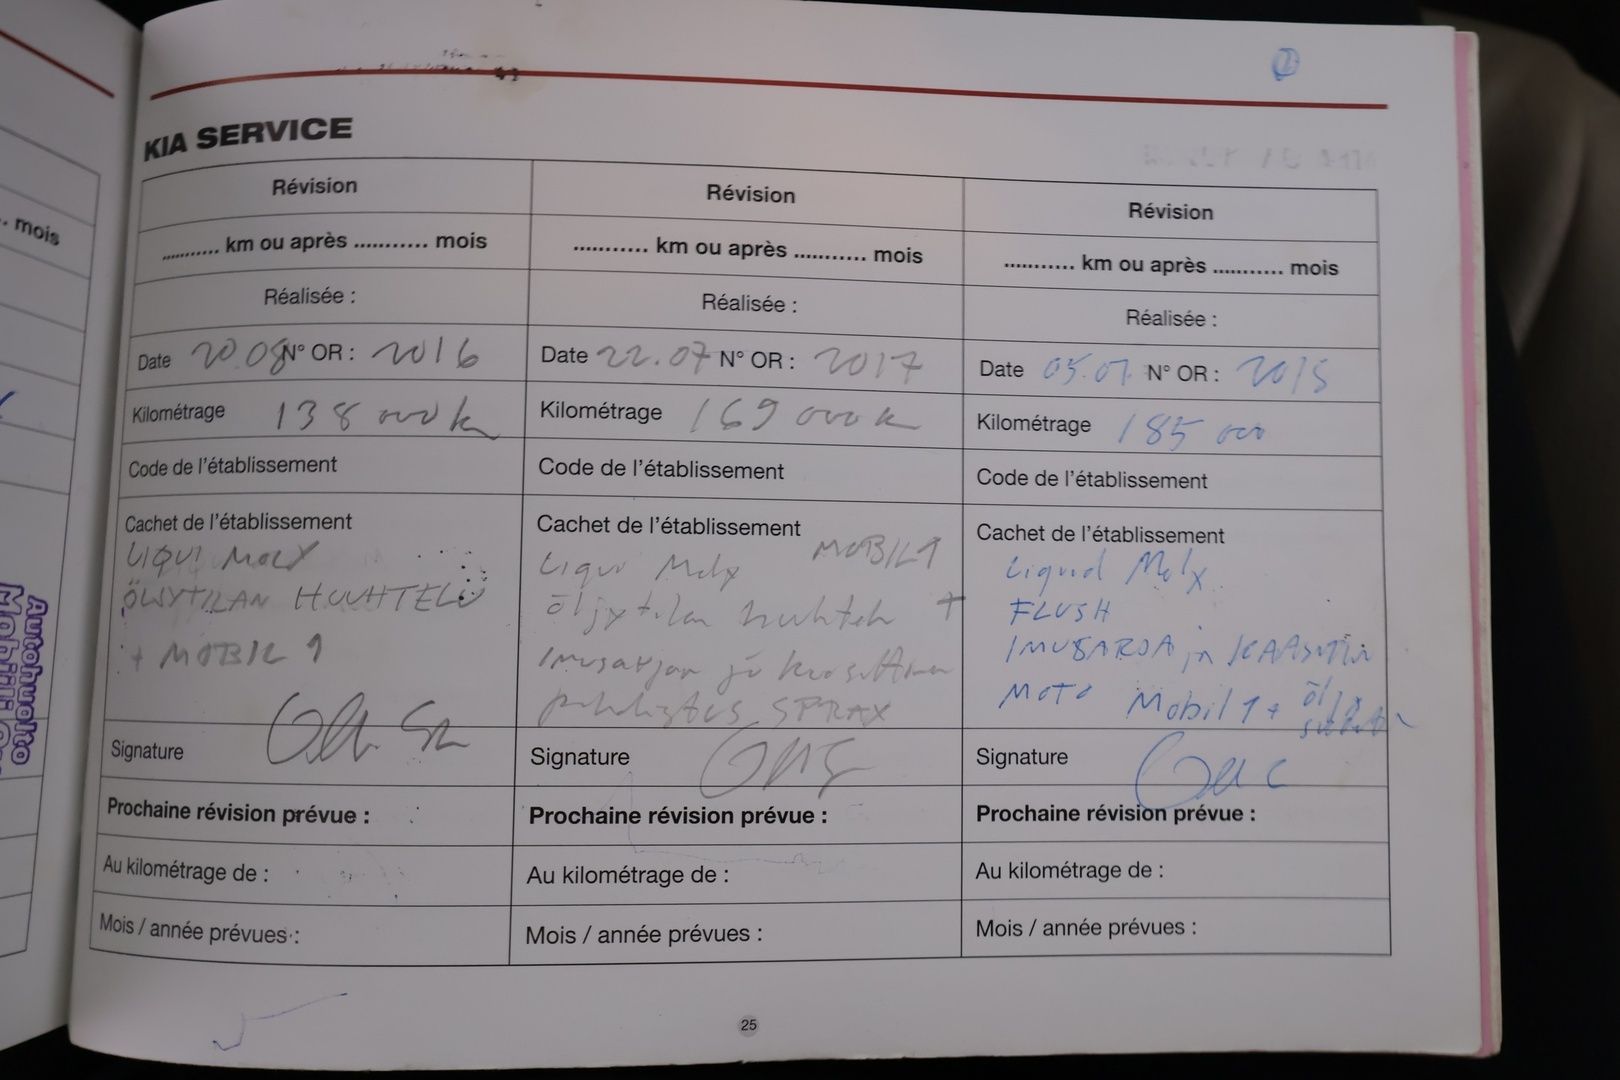 KIA SERVICE
Révision
........... km ou après ........... mois
Réalisée :
Date 20.08 N° OR : 2016
Kilométrage 138 000 k
Code de l'établissement
Cachet de l'établissement
LIQUI MOLY
ÖLJYTILAN HUUHTELU
+ MOBIL 1
Signature
Prochaine révision prévue :
Au kilométrage de :
Mois / année prévues :
Révision
........... km ou après ........... mois
Réalisée :
Date 22.07 N° OR : 2017
Kilométrage 169 000 k
Code de l'établissement
Cachet de l'établissement
Liqui Moly MOBIL 1
öljytilan huuhtelu +
imusarjan ja
SPRAY
Signature
Prochaine révision prévue :
Au kilométrage de :
Mois / année prévues :
Révision
........... km ou après ........... mois
Réalisée :
Date 05.07. N° OR :
Kilométrage 185 000
Code de l'établissement
Cachet de l'établissement
Liquid Moly
FLUSH
ja
Mobil 1 +
Signature
Prochaine révision prévue :
Au kilométrage de :
Mois / année prévues :
25
.. mois
Autohuolto